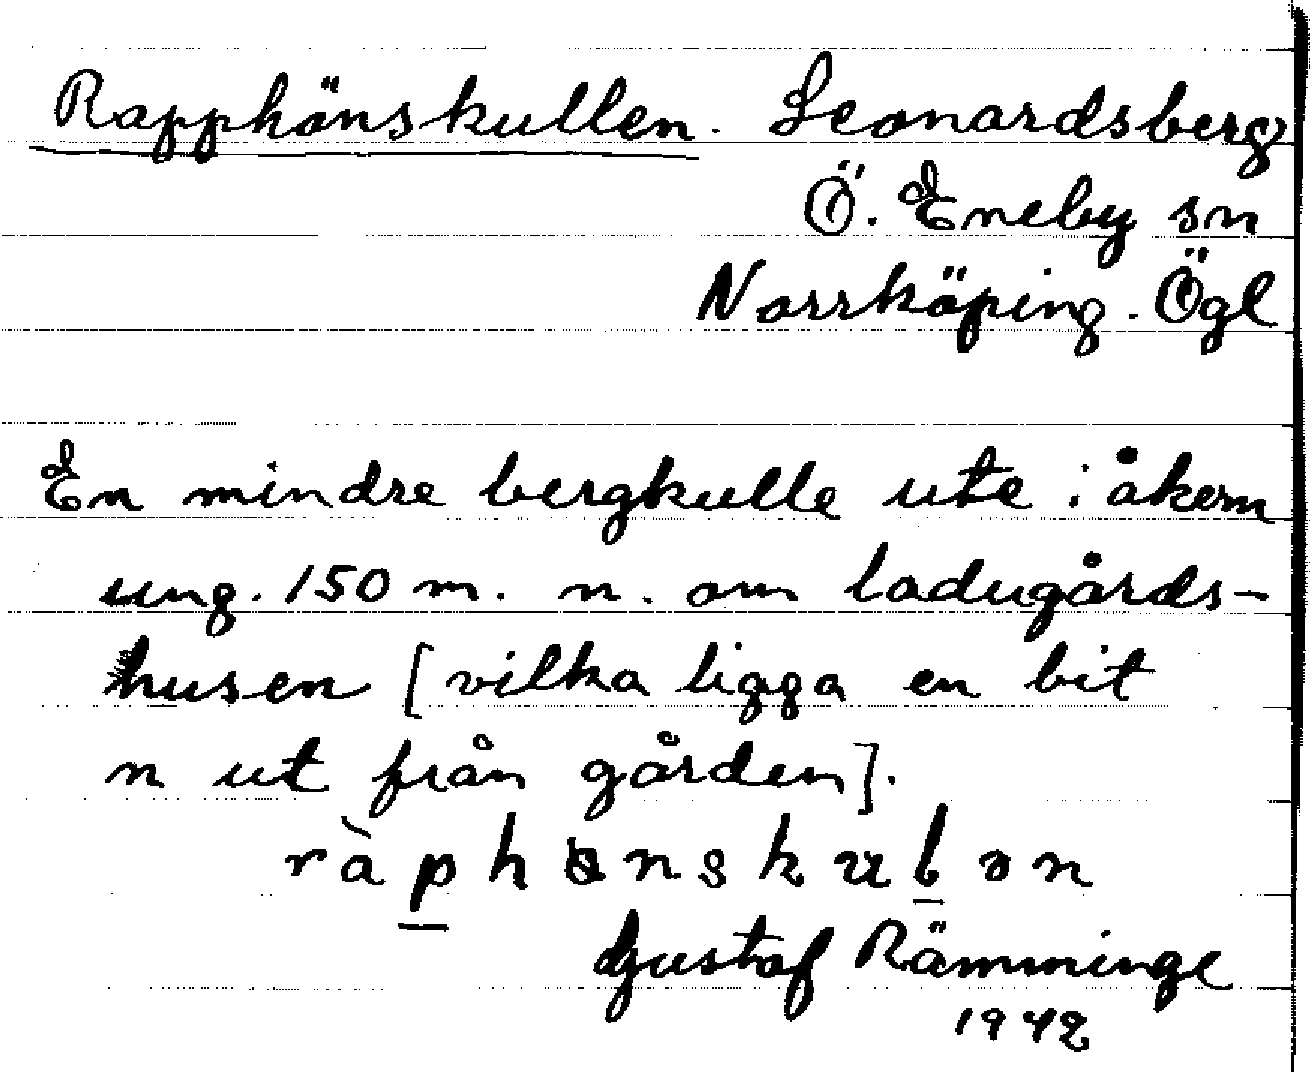 Rapphönskullen. Leonardsberg
Ö. Eneby sn
Norrköping. Ögl
En mindre bergkulle ute i åkern
ung. 150 m. n. om ladugårds-
husen [vilka ligga en bit
n ut från gården].
Gustaf Rämminge
1942